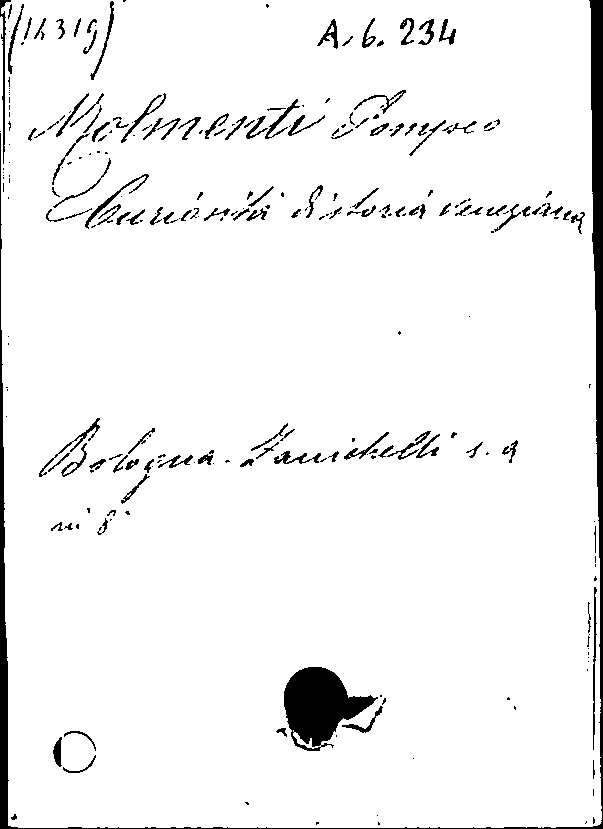 (14319)
A. 6. 234
Molmenti Pompeo
Curiosità di storia veneziana
Bologna. Zanichelli s. a
in 8°